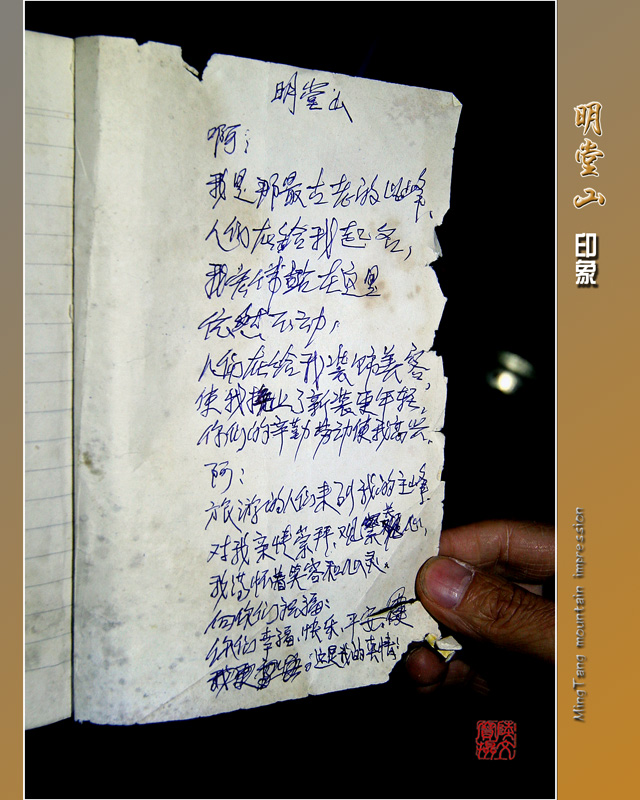 明堂山
啊:
我是那最古老的山峰,
人们在给我起名,
我
在这里
依然不动,
人们在给我装饰美容,
使我换上了新装更年轻,
你们的辛勤劳动使我高兴。
啊:
旅游的人们来到我的主峰
对我亲情崇拜,观
我满怀着笑容和心灵。
向你们祝福:
你们幸福,快乐,平安
这是我的真情!
明堂山
印象
MingTang mountain impression